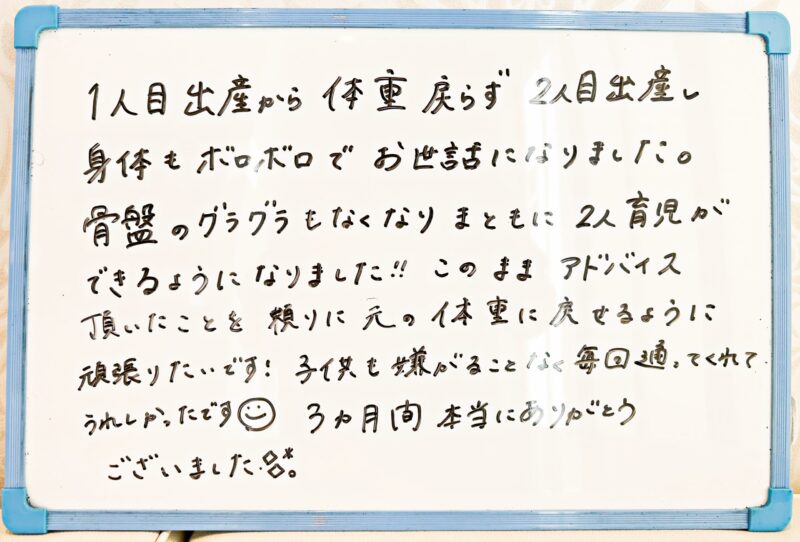 1人目出産から 体重 戻らず 2人目出産し
身体も ボロボロで お世話になりました。
骨盤のグラグラもなくなり まともに 2人育児が
できるようになりました!! このまま アドバイス
頂いたことを 頼りに 元の 体重に 戻せるように
頑張りたいです! 子供も 嫌がることなく 毎回 通ってくれて
うれしかったです☺ 3ヵ月間 本当にありがとう
ございました。